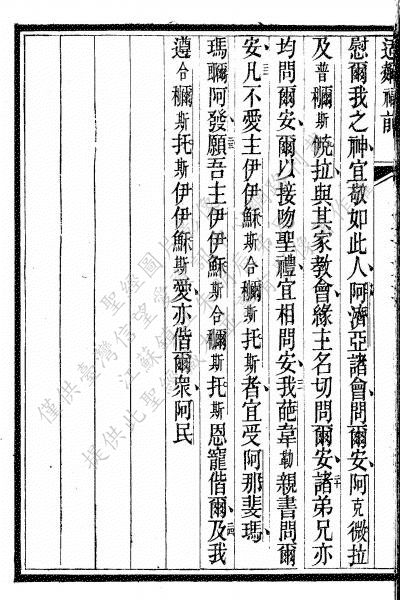 慰爾我之神、宜敬如此人、阿濟亞諸會問爾安、阿克微拉
及普穪斯幌拉、與其家教會、緣主名切問爾安、諸弟兄亦
均問爾安、爾以接吻聖禮宜相問安、我葩韋勒親書問爾
安、凡不愛主伊伊穌斯合穪斯托斯者、宜受阿那斐瑪、
瑪𠼪阿、發願吾主伊伊穌斯合穪斯托斯恩寵偕爾、及我
遵合穪斯托斯伊伊穌斯愛、亦偕爾衆、阿民